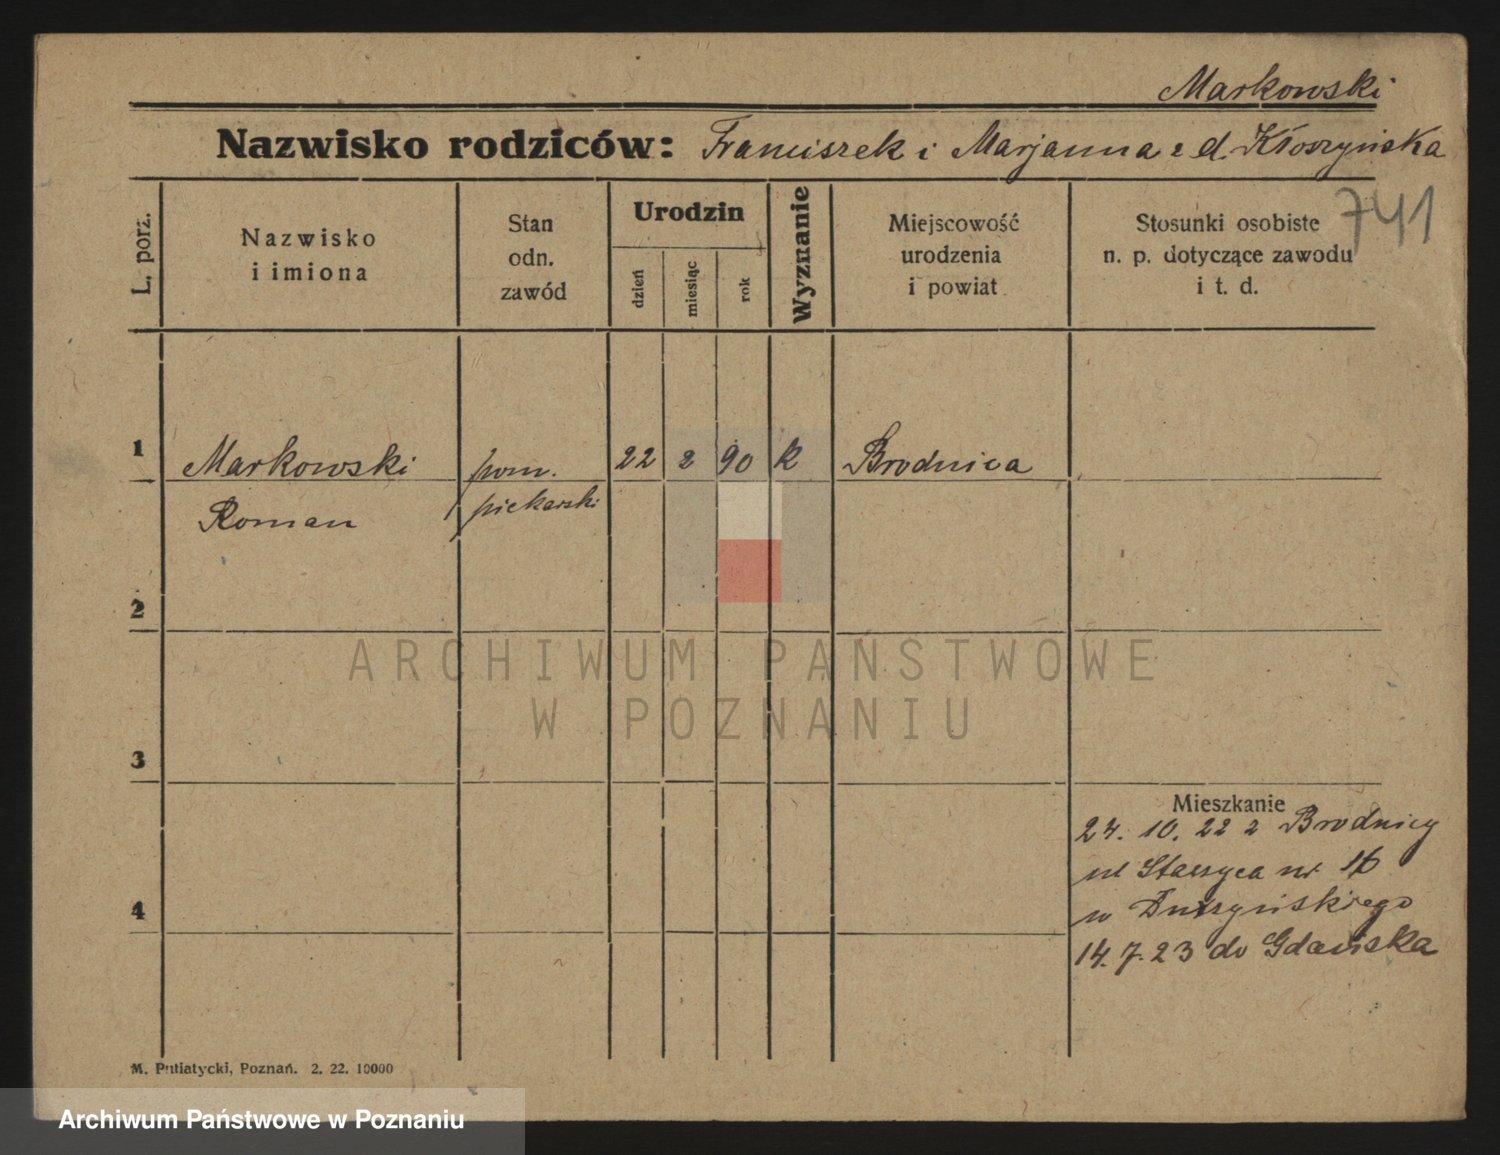 Markowski
Nazwisko rodziców: Franciszek i Marjanna z d. Kłoszyńska
741
L. porz.
Nazwisko
i imiona
Stan
odn.
zawód
Urodzin
dzień
miesiąc
rok
Wyznanie
Miejscowość
urodzenia
i powiat
Stosunki osobiste
n. p. dotyczące zawodu
i t. d.
1
Markowski
Roman
pom.
piekarski
22
2
90
k
Brodnica
2
3
4
Mieszkanie
24. 10. 22 z Brodnicy
ul Staszyca nr 16
w
14. 7. 23 do Gdańska
M. Putiatycki, Poznań. 2. 22. 10000
ARCHIWUM PAŃSTWOWE
W POZNANIU
Archiwum Państwowe w Poznaniu